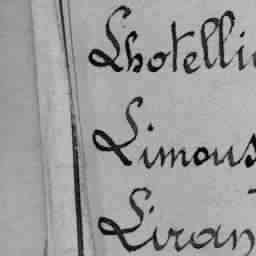 Lhotelli
Limous
Liran